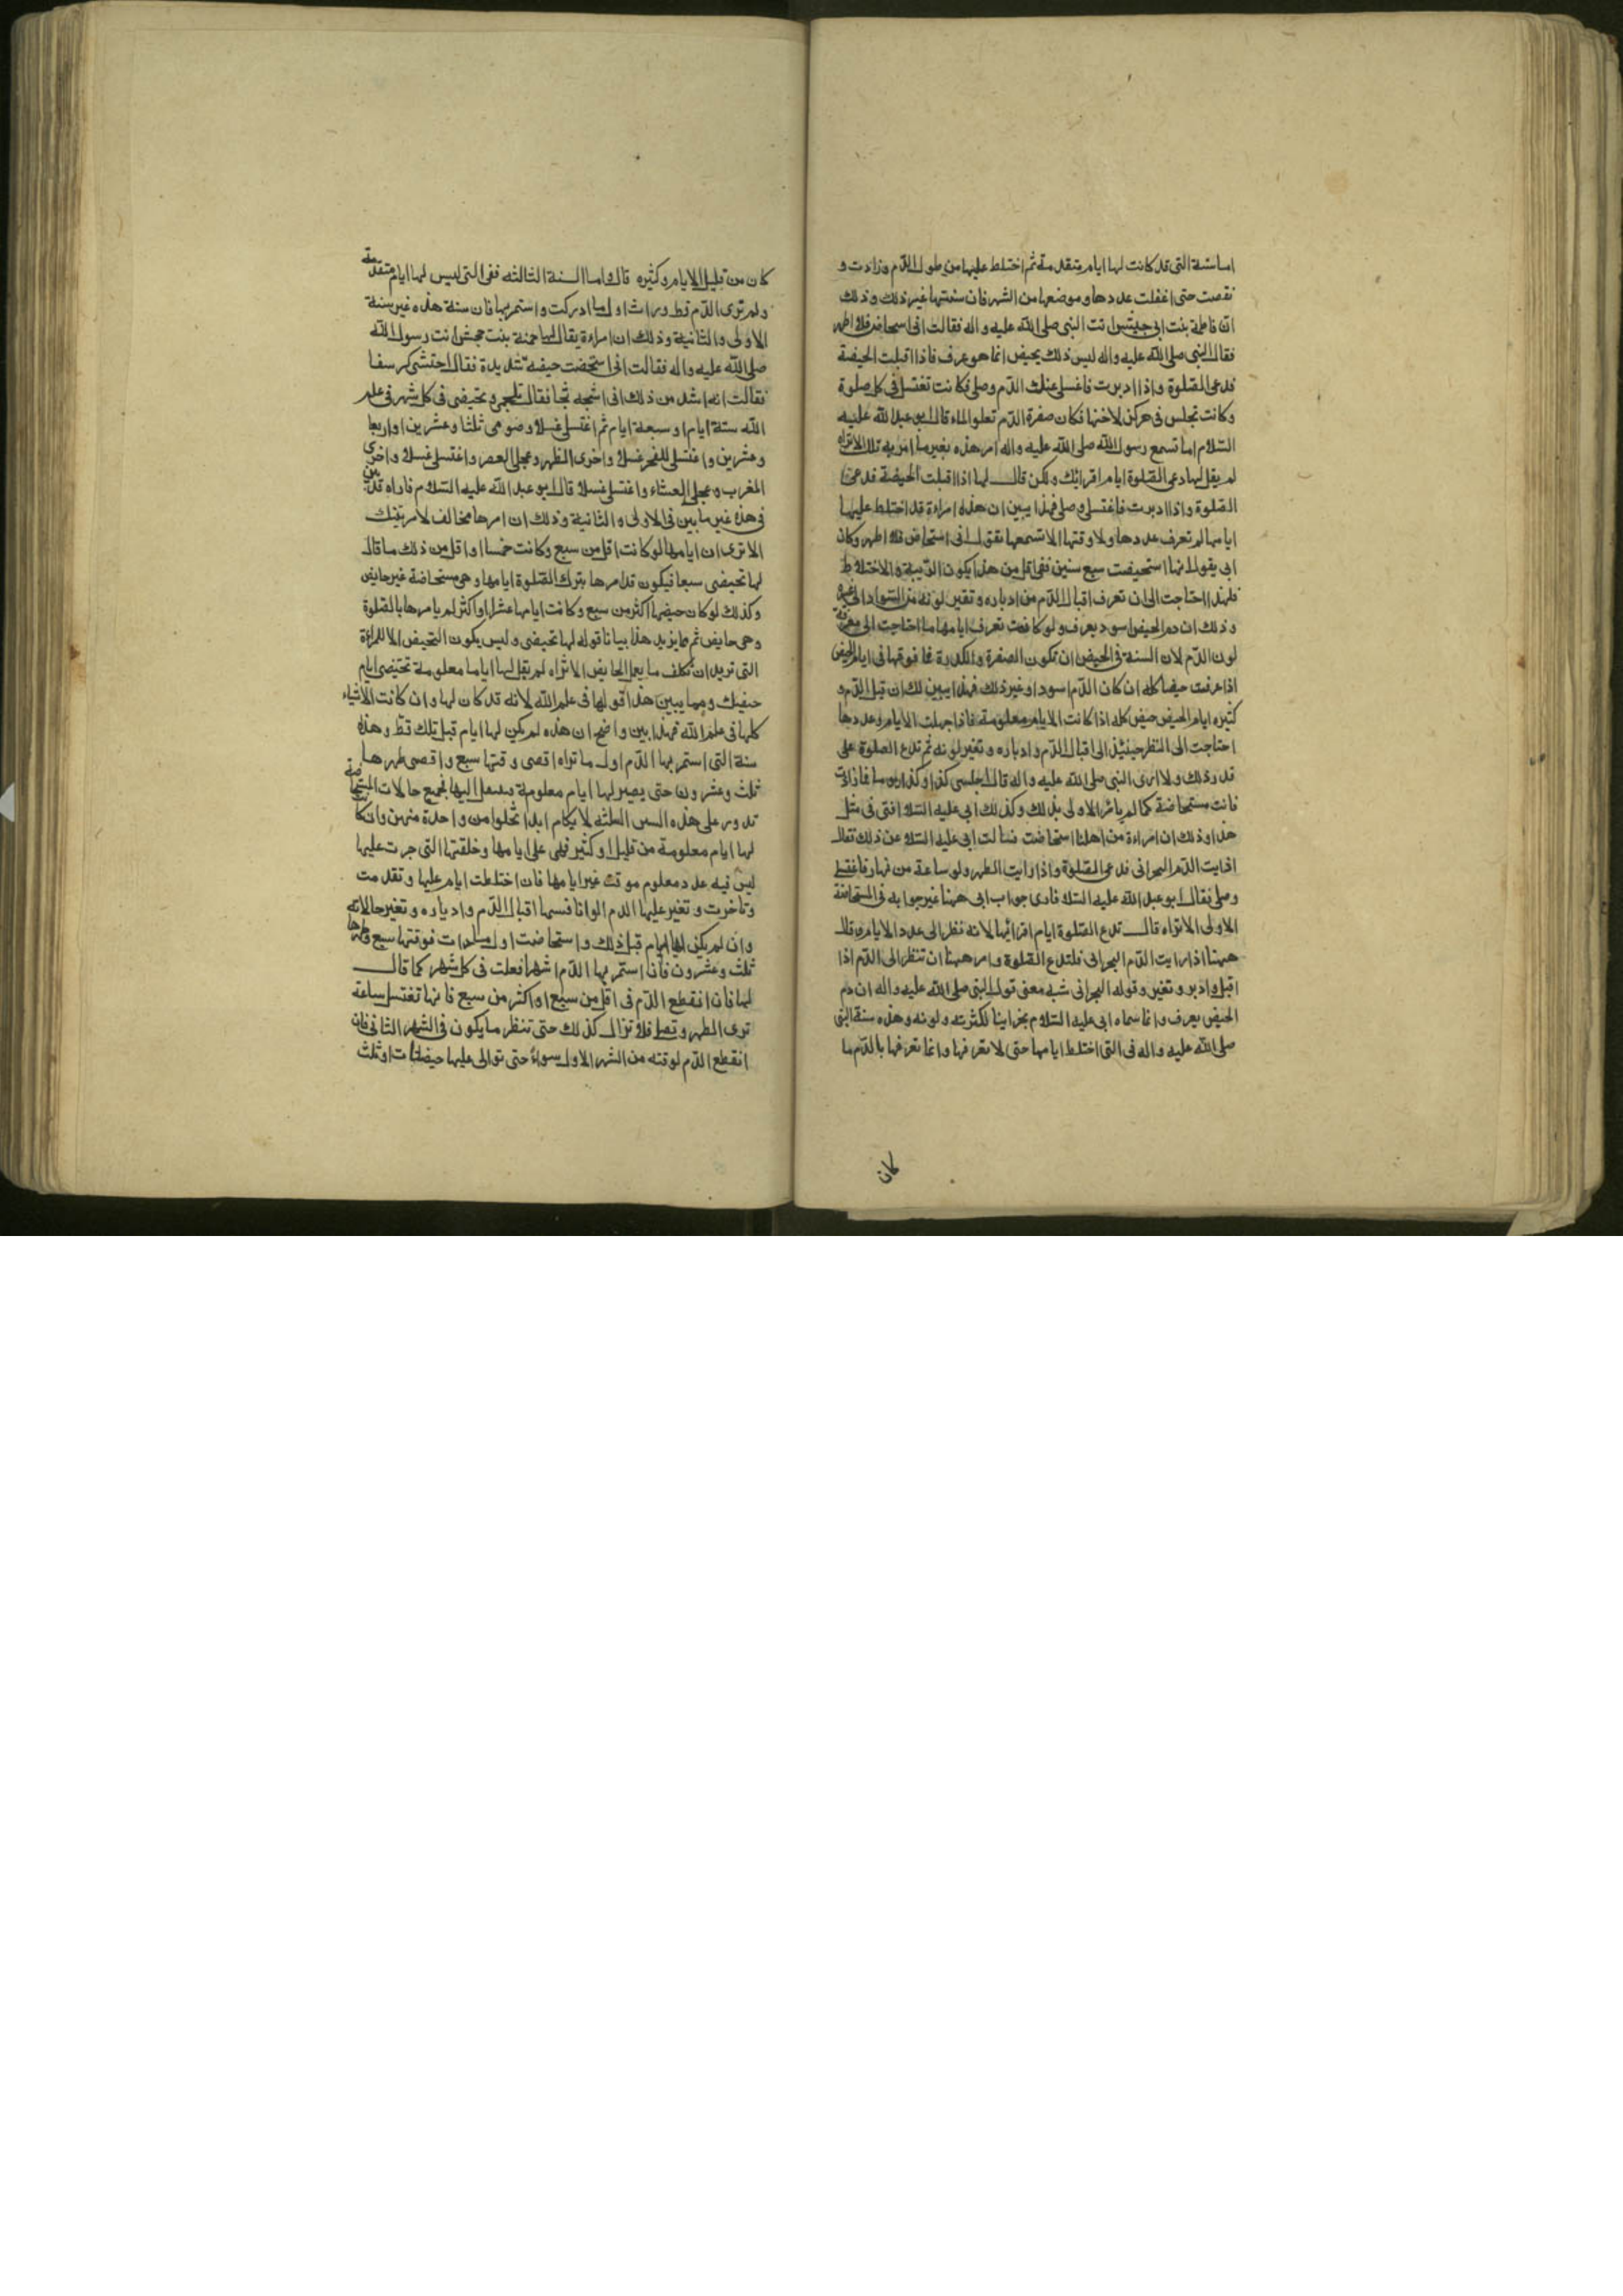 اما سنة التى قد كانت لها ايام متقدمة ثم اختلط عليها من طول الدم وزادت و
نقصت حتى اغفلت عددها وموضعها من الشهر فان سنتها غير ذلك وذلك
ان فاطمة بنت ابى حبيش اتت النبى صلى الله عليه واله فقالت انى استحاض فلا اطهر
فقال النبى صلى الله عليه واله ليس ذلك بحيض انما هو عرق فاذا اقبلت الحيضة
فدعى الصلوة واذا ادبرت فاغسلى عنك الدم وصلى فكانت تغتسل فى كل صلوة
وكانت تجلس فى مركن لاختها فكان صفرة الدم تعلوا الماء قال ابو عبد الله عليه
السلام اما تسمع رسول الله صلى الله عليه واله امر هذه بغير ما امر به تلك الا تراه
لم يقل لها دعى الصلوة ايام اقرائك ولكن قال لها اذا اقبلت الحيضة فدعى
الصلوة واذا ادبرت فاغتسلى وصلى فهذا يبين ان هذه امراءة قد اختلط عليها
ايامها لم تعرف عددها ولا وقتها الا تسمعها تقول انى استحاض فلا اطهر وكان
ابى يقول انها استحيضت سبع سنين ففى اقل من هذا يكون الريبة والاختلاط
فلهذا احتاجت الى ان تعرف اقبال الدم من ادباره وتغير لونه من السواد الى غيره
وذلك ان دم الحيض اسود يعرف ولو كانت تعرف ايامها ما احتاجت الى معرفة
لون الدم لان السنة فى الحيض ان تكون الصفرة والكدرة فما فوقها فى ايام الحيض
اذا عرفت حيضا كله ان كان الدم اسود او غير ذلك فهذا يبين لك ان قليل الدم و
كثيره ايام الحيض حيض كله اذا كانت الايام معلومة فاذا جهلت الايام وعددها
احتاجت الى النظر حينئذ الى اقبال الدم وادباره وتغير لونه ثم تدع الصلوة على
قدر ذلك ولا ارى النبى صلى الله عليه واله قال اجلسى كذا وكذا يوما فما زادت
فانت مستحاضة كما لم يامر الاولى بذلك وكذلك ابى عليه السلا افتى فى مثل
هذا وذلك ان امراءة من اهلنا استحاضت فسالت ابى عليه السلا عن ذلك فقال
اذا رايت الدم البحرانى فدعى الصلوة واذا رايت الطهر ولو ساعة من نهار فاغتسلى
وصلى فقال ابو عبد الله عليه السلا فارى جواب ابى ههنا غير جوابه فى المستحاضة
الاولى الا تراه قال تدع الصلوة ايام اقرائها لانه نظر الى عدد الايام وقال
ههنا اذا رايت الدم البحرانى فلتدع الصلوة وامر ههنا ان تنظر الى الدم اذا
اقبل وادبر وتغير وقوله البحرانى شبه معنى قول النبى صلى الله عليه واله ان دم
الحيض يعرف وانما سماه ابى عليه السلام بحرانيا لكثرته ولونه وهذه سنة النبى
صلى الله عليه واله فى التى اختلط ايامها حتى لا تعرفها وانما تعرفها بالدم ما
كان
كان من قليل الايام وكثيره قال واما السنة الثالثه ففى التى ليس لها ايام متقدمة
ولم ترى الدم قط ورات اول ما ادركت واستمر بها فان سنة هذه غير سنة
الاولى والثانية وذلك ان امراءة يقال لها حمنة بنت جحش اتت رسول الله
صلى الله عليه واله فقالت انى استحضت حيضة شديدة فقال احتشى كرسفا
فقالت انه اشد من ذلك انى اثجه ثجا فقال تلجمى وتحيضى فى كل شهر فى علم
الله ستة ايام او سبعة ايام ثم اغتسلى غسلا وصومى ثلثا وعشرين او اربعا
وعشرين واغتسلى للفجر غسلا واخرى الظهر وعجلى العصر واغتسلى غسلا واخرى
المغرب وعجلى العشاء واغتسلى غسلا قال ابو عبد الله عليه السلام فاراه قد سن
فى هذه غير ما بين فى الاولى والثانية وذلك ان امرها مخالف لامر تينك
الا ترى ان ايامها لو كانت اقل من سبع وكانت خمسا او اقل من ذلك ما قال
لها تحيضى سبعا فيكون قد امرها بترك الصلوة ايامها وهى مستحاضة غير حايض
وكذلك لو كان حيضها اكثر من سبع وكانت ايامها عشرا او اكثر لم يامرها بالصلوة
وهى حايض ثم مما يزيد هذا بيانا قوله لها تحيضى وليس يكون التحيض الا للمراءة
التى تريد ان تكلف ما يعمل الحايض الا تراه لم يقل لها اياما معلومة تحيضى ايام
حيضك ومما يبين هذا قوله لها فى علم الله لانه قد كان لها وان كانت الاشياء
كلها فى علم الله فهذا بين واضح ان هذه لم يكن لها ايام قبل تلك قط وهذه
سنة التى استمر بها الدم اول ما تراه اقصى وقتها سبع واقصى طهرها
ثلث وعشرون حتى يصير لها ايام معلومة فينتقل اليها فجميع حالات المستحاضة
تدور على هذه السنن الثلثه لا يكام ابدا تخلوا من واحدة منهن وان كانت
لها ايام معلومة من قليل او كثير فهى على ايامها وخلقتها التى جرت عليها
ليس فيه عدد معلوم موقت غير ايامها فان اختلطت ايام عليها وتقدمت
وتاخرت وتغير عليها الدم الوانا فسنها اقبال الدم وادباره وتغير حالاته
وان لم يكن لها ايام قبل ذلك واستحاضت اول ما رات فوقتها سبع وطهرها
ثلث وعشرون فان استمر بها الدم اشهرا فعلت فى كل شهر كما قال
لها فان انقطع الدم فى اقل من سبع او اكثر من سبع فانها تغتسل ساعة
ترى الطهر وتصلى فلا تزال كذلك حتى تنظر ما يكون فى الشهر الثانى فان
انقطع الدم لوقته من الشهر الاول سواء حتى توالى عليها حيضتان او ثلث